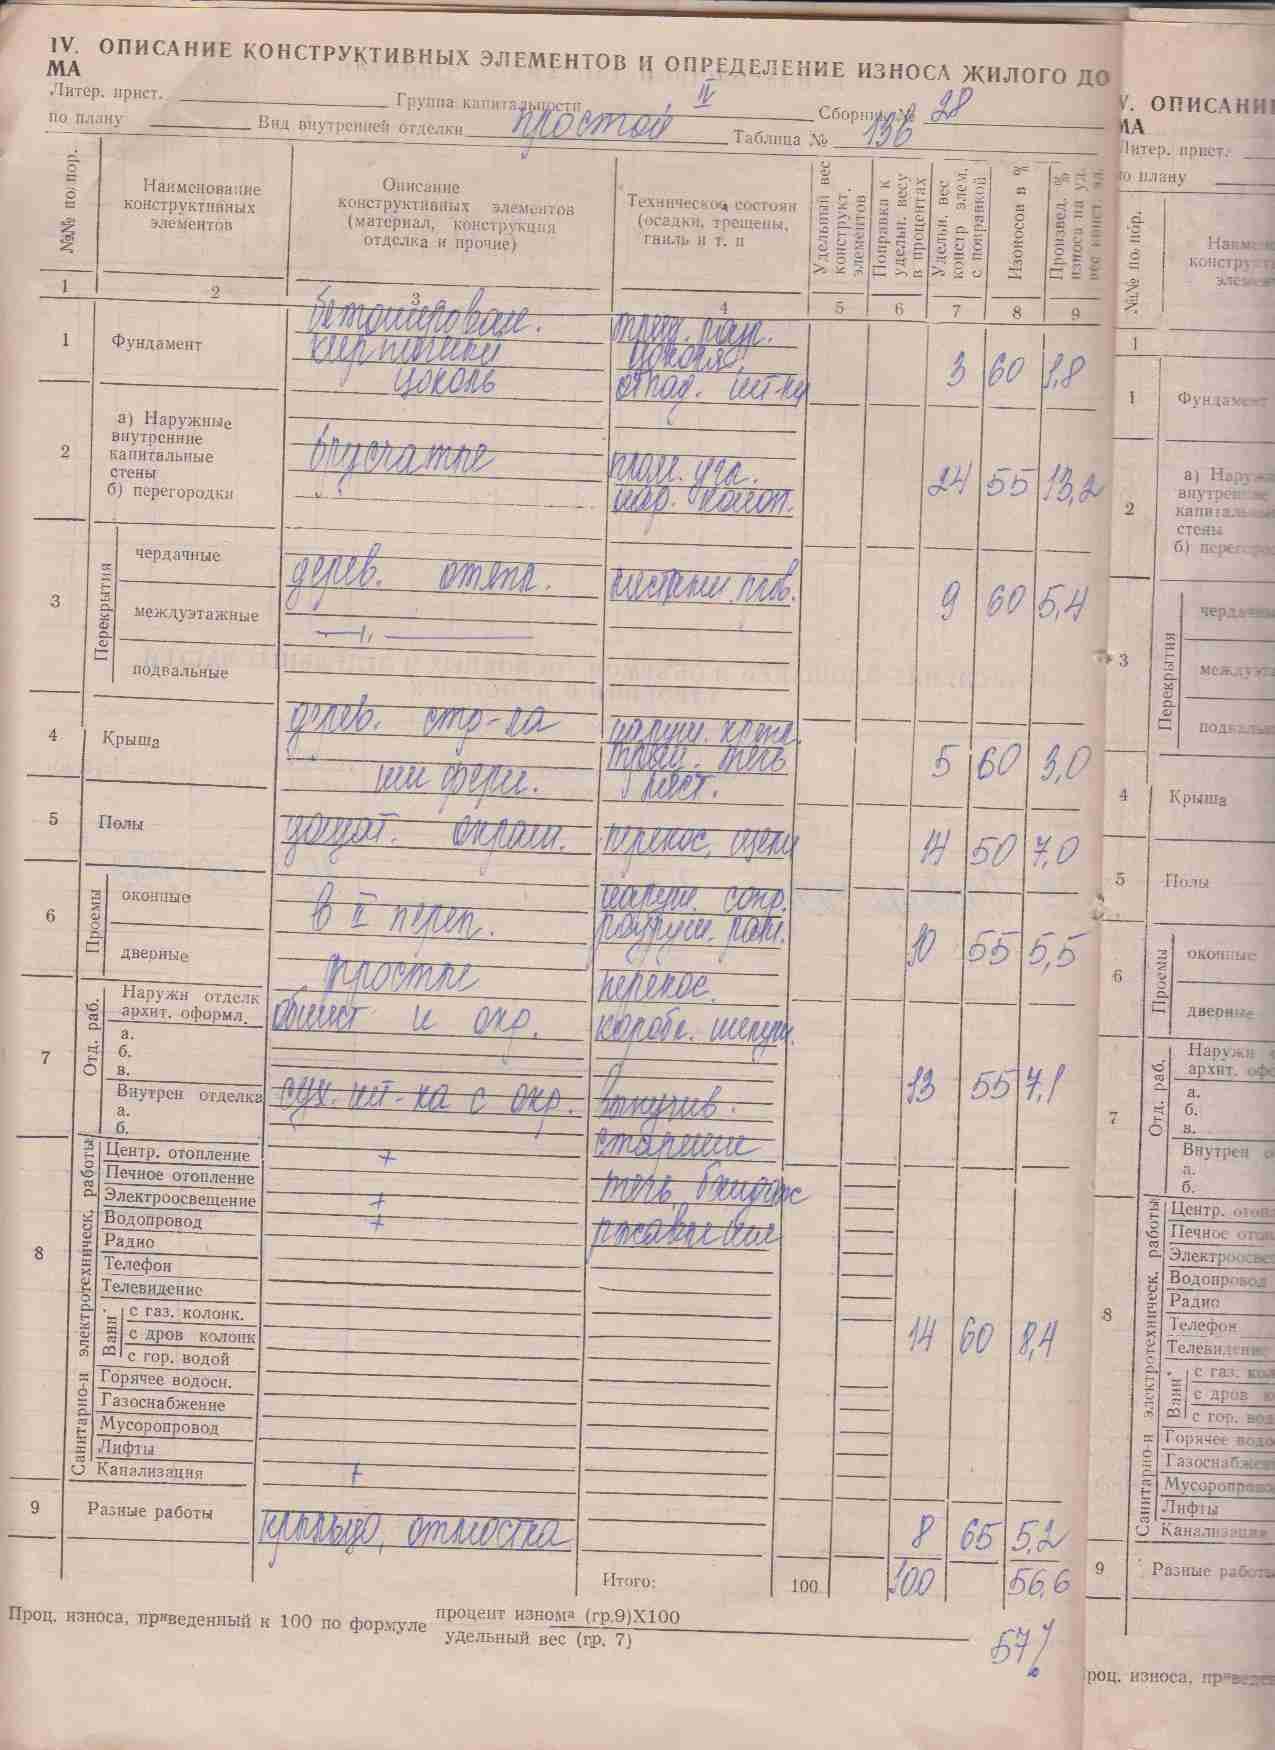 IV. ОПИСАНИЕ КОНСТРУКТИВНЫХ ЭЛЕМЕНТОВ И ОПРЕДЕЛЕНИЕ ИЗНОСА ЖИЛОГО ДО
МА
Литер. прист. Группа капитальности IV Сборник № 28
по плану Вид внутренней отделки простой Таблица № 136
№№ по пор.
Наименование
конструктивных
элементов
Описание
конструктивных элементов
(материал, конструкция
отделка и прочие)
Техническое состоян
(осадки, трещены,
гниль и т. п
Удельный вес
конструкт.
элементов
Поправка к
удельн. весу
в процентах
Удельн. вес
констр элем.
с поправкой
Изоносов в %
Произвед. %
износа на уд.
вес конст. эл.
1 2 3 4 5 6 7 8 9
1 Фундамент
бетонирован.
кирпичики
цоколь
цоколя,
отпад. шт-ки
3 60 1,8
2
а) Наружные
внутренние
капитальные
стены
б) перегородки
брусчатые
24 55 13,2
3 Перекрытия
чердачные
дерев. отепл.
9 60 5,4
междуэтажные
подвальные
4 Крыша
дерев. стр-ла
шиферн.
течь
5 60 3,0
5 Полы
дощат. окраш. перекос, щели
14 50 7,0
6 Проемы
оконные
в II переп.
дверные
простые
перекос.
10 55 5,5
7 Отд. раб.
Наружн отделк
архит. оформл.
обшит и окр.
а.
б.
в.
Внутрен отделка
сух. шт-ка с окр.
а.
б.
13 55 7,1
8 Санитарно-и электротехническ. работы
Центр. отопление +
Печное отопление
Электроосвещение +
Водопровод +
Радио
Телефон
Телевидение
Ванн
с газ. колонк.
с дров колонк
с гор. водой
Горячее водосн.
Газоснабжение
Мусоропровод
Лифты
Канализация +
старение
течь
ржавление
14 60 8,4
9 Разные работы
крыльцо, отмостка
8 65 5,2
Итого: 100 100 56,6
Проц. износа, приведенный к 100 по формуле процент износа (гр.9)X100
удельный вес (гр. 7)
57%
V. ОПИСАНИЕ
МА
Литер. прист.
по плану
№№ по пор.
1
1 Фундамент
2
внутренние
капитальные
стены
3 Перекрытия
чердачные
4 Крыша
5 Полы
6 Проемы
оконные
дверные
7 Отд. раб.
а.
б.
в.
а.
б.
8 Санитарно-и электротехническ. работы
Водопровод
Радио
Телефон
Телевидение
Ванн
Мусоропровод
Лифты
Канализация
9 Разные работы